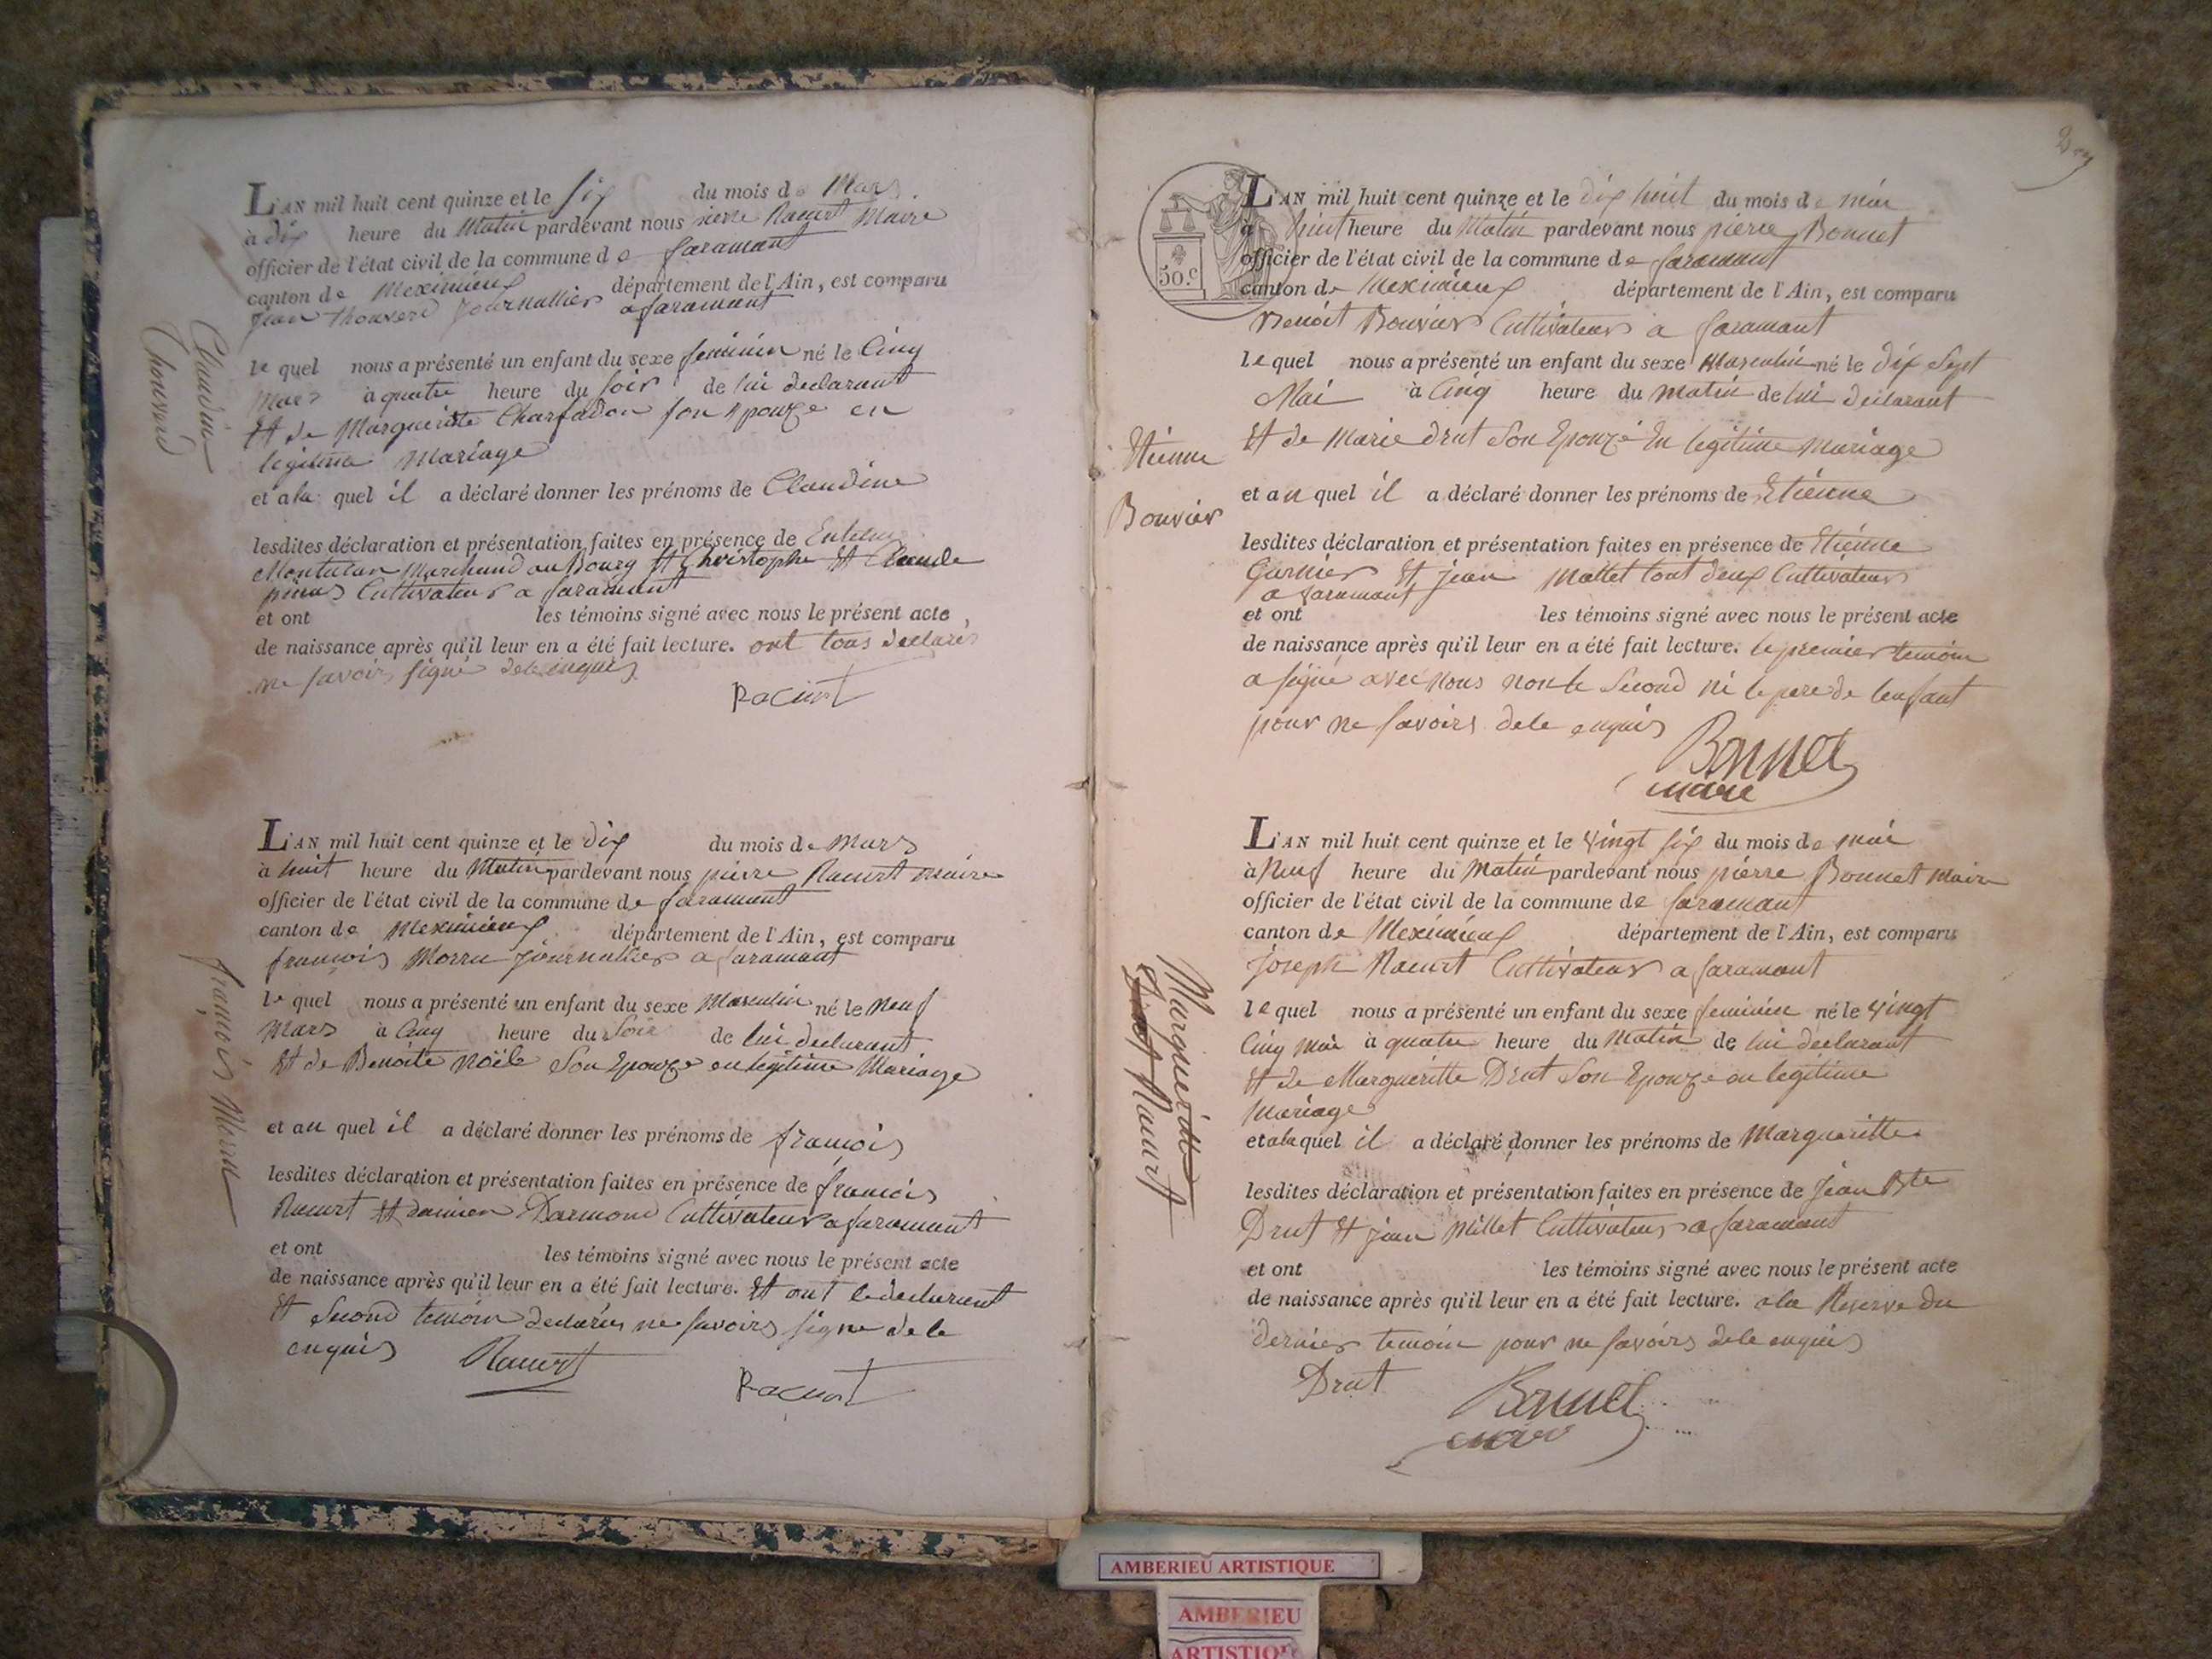 L'AN mil huit cent quinze et le six du mois de Mars
à dix heure du Matin pardevant nous pierre Racurt Maire
officier de l'état civil de la commune de faramant
canton de Meximieux département de l'Ain, est comparu
jean thouverd journallier a faramant
le quel nous a présenté un enfant du sexe feminin né le Cinq
Mars à quatre heure du soir de lui declarant
Et de Margueritte son Epouze en
legitime Mariage
et a la quel il a déclaré donner les prénoms de Claudine
lesdites déclaration et présentation faites en présence de
Marchand au Bourg St Christophe Et Claude
Cultivateur a faramant
et ont les témoins signé avec nous le présent acte
de naissance après qu'il leur en a été fait lecture. ont tous declarés
ne savoir signé dele enquis
Racurt
Claudine
Thouverd
L'AN mil huit cent quinze et le dix du mois de Mars
à huit heure du Matin pardevant nous pierre Racurt maire
officier de l'état civil de la commune de faramant
canton de Meximieux département de l'Ain, est comparu
françois Morru journallier a faramant
le quel nous a présenté un enfant du sexe Masculin né le neuf
Mars à Cinq heure du Soir de lui declarant
Et de Benoite Noële Son Epouze en legitime Mariage
et au quel il a déclaré donner les prénoms de françois
lesdites déclaration et présentation faites en présence de francois
Racurt Et damien Darmond Cultivateur a faramant
et ont les témoins signé avec nous le présent acte
de naissance après qu'il leur en a été fait lecture. Et ont le declarant
Et Second temoin declarés ne savoirs signe de le
enquis
Racurt Racurt
françois Morru
50.c
L'AN mil huit cent quinze et le dix huit du mois de mai
à huit heure du Matin pardevant nous pierre Bonnet
officier de l'état civil de la commune de faramant
canton de Meximieux département de l'Ain, est comparu
Benoit Bouvier Cultivateur a faramant
le quel nous a présenté un enfant du sexe Masculin né le dix Sept
Mai à Cinq heure du matin de lui declarant
Et de Marie drut Son Epouze En legitime Mariage
et au quel il a déclaré donner les prénoms de Etienne
lesdites déclaration et présentation faites en présence de Etienne
Garnier Et jean Mallet tout deux Cultivateurs
a faramant
et ont les témoins signé avec nous le présent acte
de naissance après qu'il leur en a été fait lecture. le premier temoin
a signé avec nous non le Second ni le pere de lenfant
pour ne savoirs dele enquis
Bonnet
maire
Etienne
Bouvier
L'AN mil huit cent quinze et le vingt six du mois de mai
à Neuf heure du Matin pardevant nous pierre Bonnet Maire
officier de l'état civil de la commune de faramant
canton de Meximieux département de l'Ain, est comparu
joseph Racurt Cultivateur a faramant
le quel nous a présenté un enfant du sexe feminin né le vingt
Cinq mai à quatre heure du Matin de lui declarant
Et de Margueritte Drut Son Epouze en legitime
Mariage
et a la quel il a déclaré donner les prénoms de Margueritte
lesdites déclaration et présentation faites en présence de jean Bte
Drut Et jean Millet Cultivateurs a faramant
et ont les témoins signé avec nous le présent acte
de naissance après qu'il leur en a été fait lecture. a la Reserve du
dernier temoin pour ne savoirs dele enquis
Drut Bonnet
maire
Margueritte
Racurt
AMBERIEU ARTISTIQUE
AMBERIEU
ARTISTIQUE